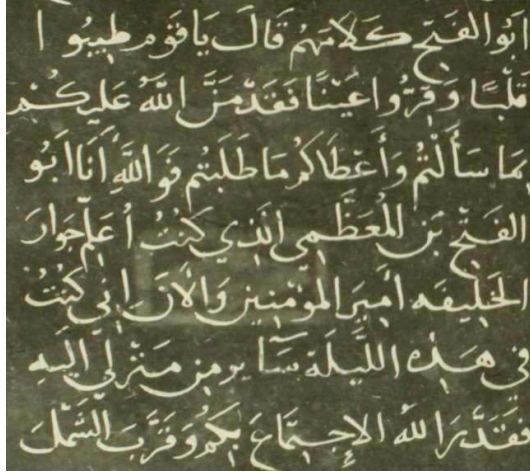 ابو الفتح كلامهم قال يا قوم طيبوا
قلبًا وقرّوا اعينًا فقد منّ الله عليكم
بما سألتم وأعطاكم ما طلبتم فوالله أنا ابو
الفتح بن المعظمي الذي كنت اعلم جوار
الخليفه امير المؤمنين والآن اني كنت
في هذه الليلة سائر من منزلي اليه
فقدّر الله الاجتماع بكم وقرّب الشمل